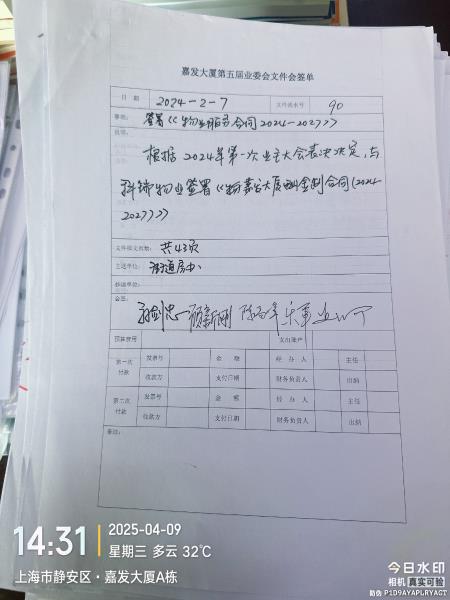 嘉发大厦第五届业委会文件会签单
日 期 2024-2-7 文件流水号 90
事项: 签署《物业服务合同2024-2027》
说明:
根据2024年第一次业主大会表决决定,与
科瑞物业签署《嘉发大厦 合同(2024-
2027)》
文件排文页数: 共43页
主送单位: 街道房办
抄送单位:
会签:
预算费用 支出账户
第一次付款 发票号 金 额 经 办 人 主任
收款方 支付日期 财务负责人 出纳
第二次付款 发票号 金 额 经 办 人 主任
收款方 支付日期 财务负责人 出纳
备注:
14:31 2025-04-09
星期三 多云 32℃
上海市静安区·嘉发大厦A栋
今日水印
相机 真实可验
防伪 P1D9AYAPLRYACT